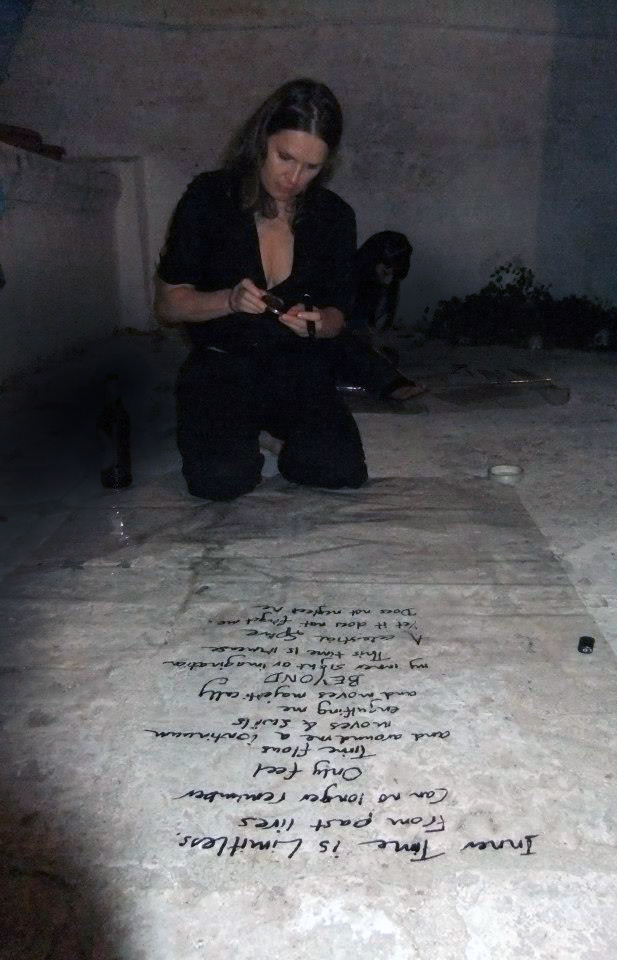 Inner Time is Limitless.
From past lives
Can no longer remember
Only feel
Time flows
and around me a continuum
moves & swirls
engulfing me
and moves majestically
BEYOND
my inner sight or imagination
This time is immense
A celestial sphere
Yet it does not forget me.
Does not neglect me